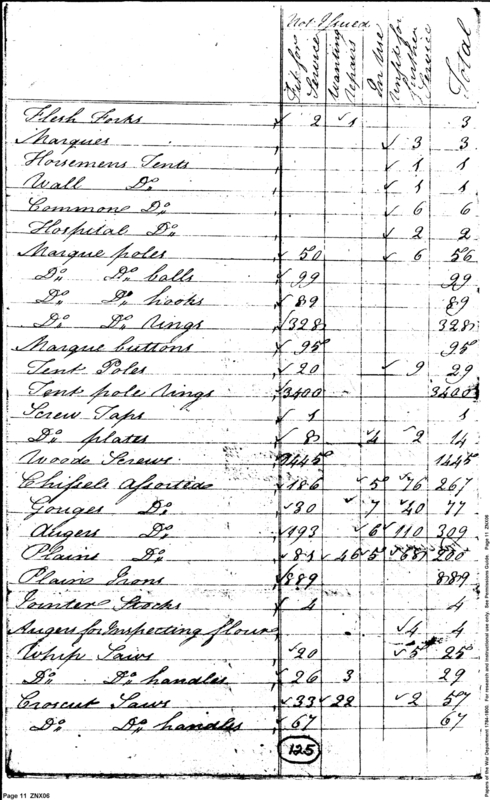 Not Issued
Fit for Service | Wanting repairs | In Use | Unfit for further Service | Total
Flesh Forks 2 1 3
Marques 3 3
Horsemens Tents 1 1
Wall Do 1 1
Common Do 6 6
Hospital Do 2 2
Marque poles 50 6 56
Do Do balls 99 99
Do Do hooks 89 89
Do Do rings 328 328
Marque buttons 95 95
Tent Poles 20 9 29
Tent pole rings 3400 3400
Screw Taps 1 1
Do plates 8 4 2 14
Wood Screws 1445 1445
Chissels assorted 186 5 76 267
Gouges Do 30 7 40 77
Augers Do 193 6 110 309
Plains Do 81 46 5 68 200
Plain Irons 889 889
Jointer Stocks 4 4
Augers for Inspecting flour 4 4
Whip Saws 20 5 25
Do Do handles 26 3 29
Croscut Saws 33 22 2 57
Do Do handles 67 67
125
Page 11 ZNX06
Papers of the War Department 1784-1800. For research and instructional use only. See Permissions Guide. Page 11 ZNX06